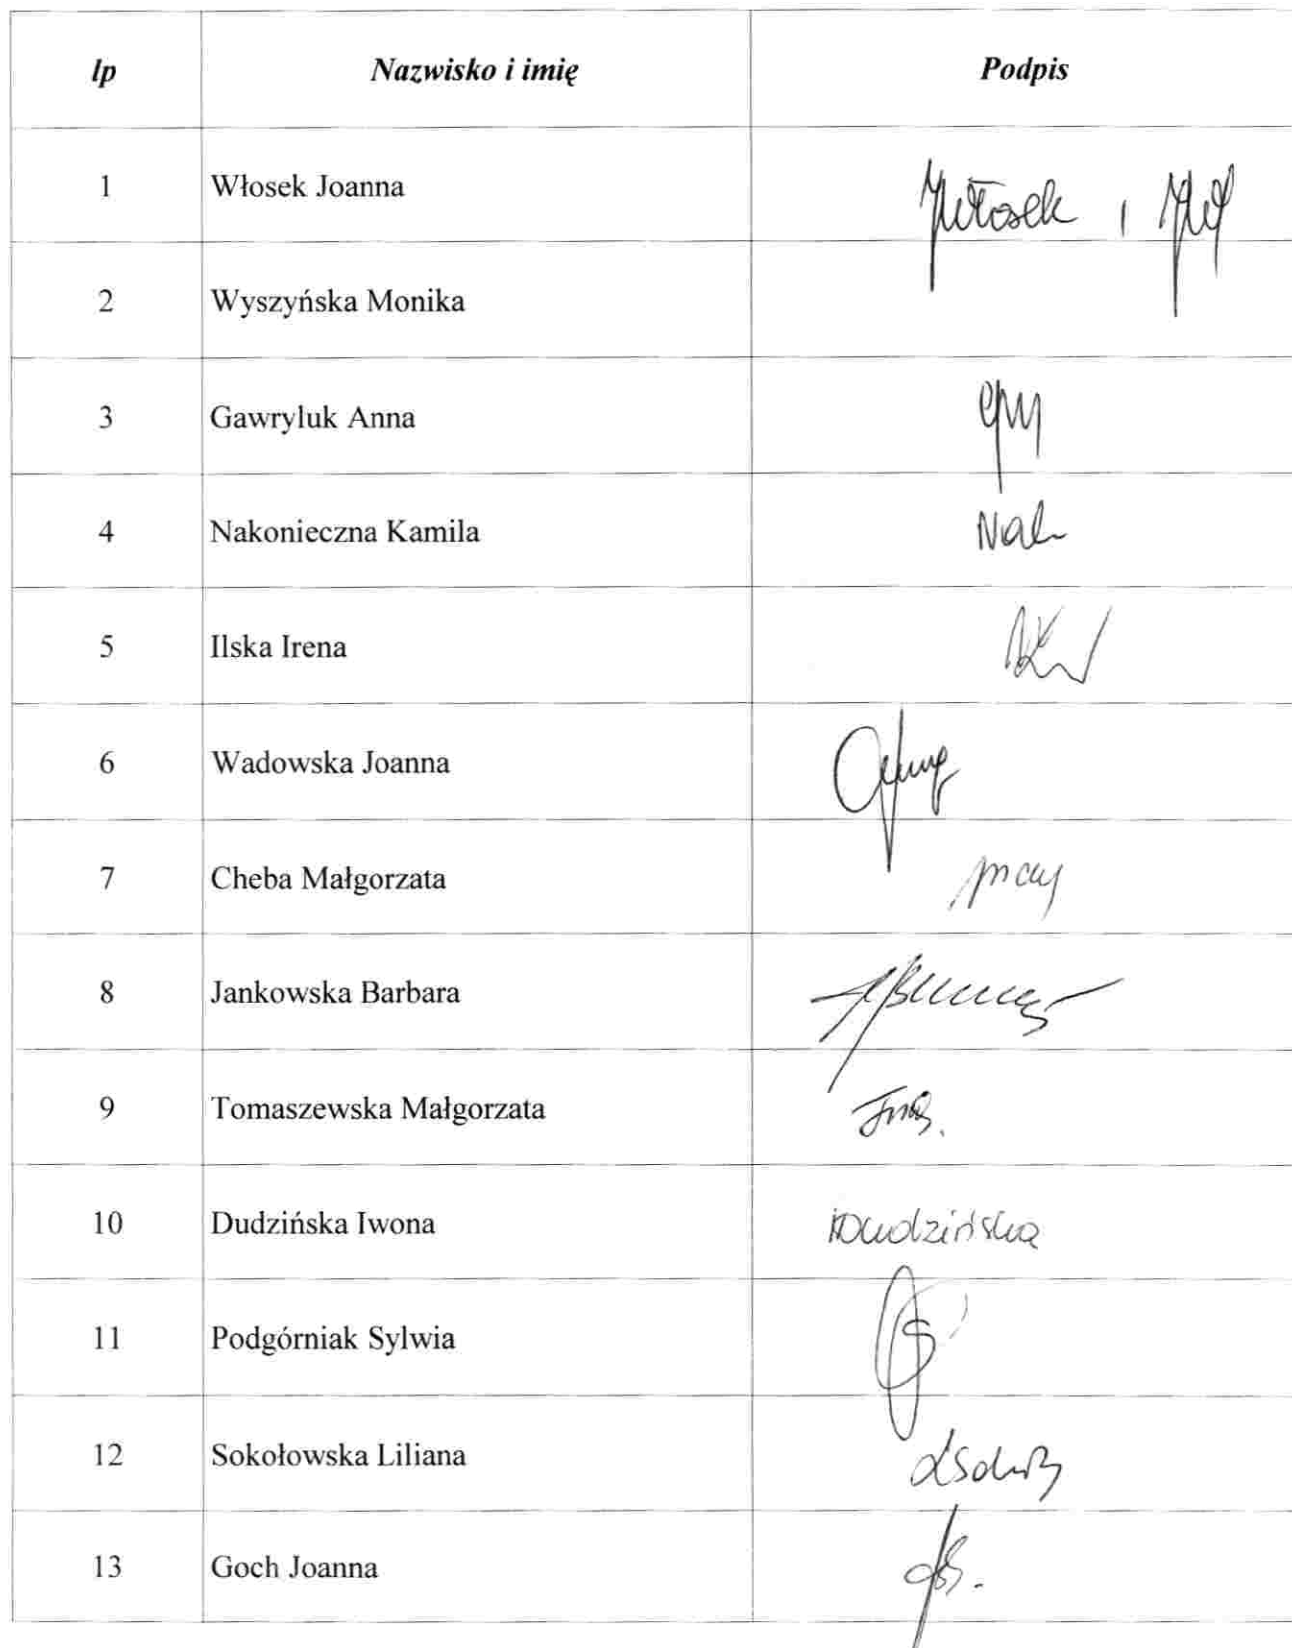 lp Nazwisko i imię Podpis
1 Włosek Joanna JWłosek
2 Wyszyńska Monika
3 Gawryluk Anna
4 Nakonieczna Kamila Nak
5 Ilska Irena
6 Wadowska Joanna
7 Cheba Małgorzata
8 Jankowska Barbara
9 Tomaszewska Małgorzata
10 Dudzińska Iwona IDudzińska
11 Podgórniak Sylwia
12 Sokołowska Liliana
13 Goch Joanna